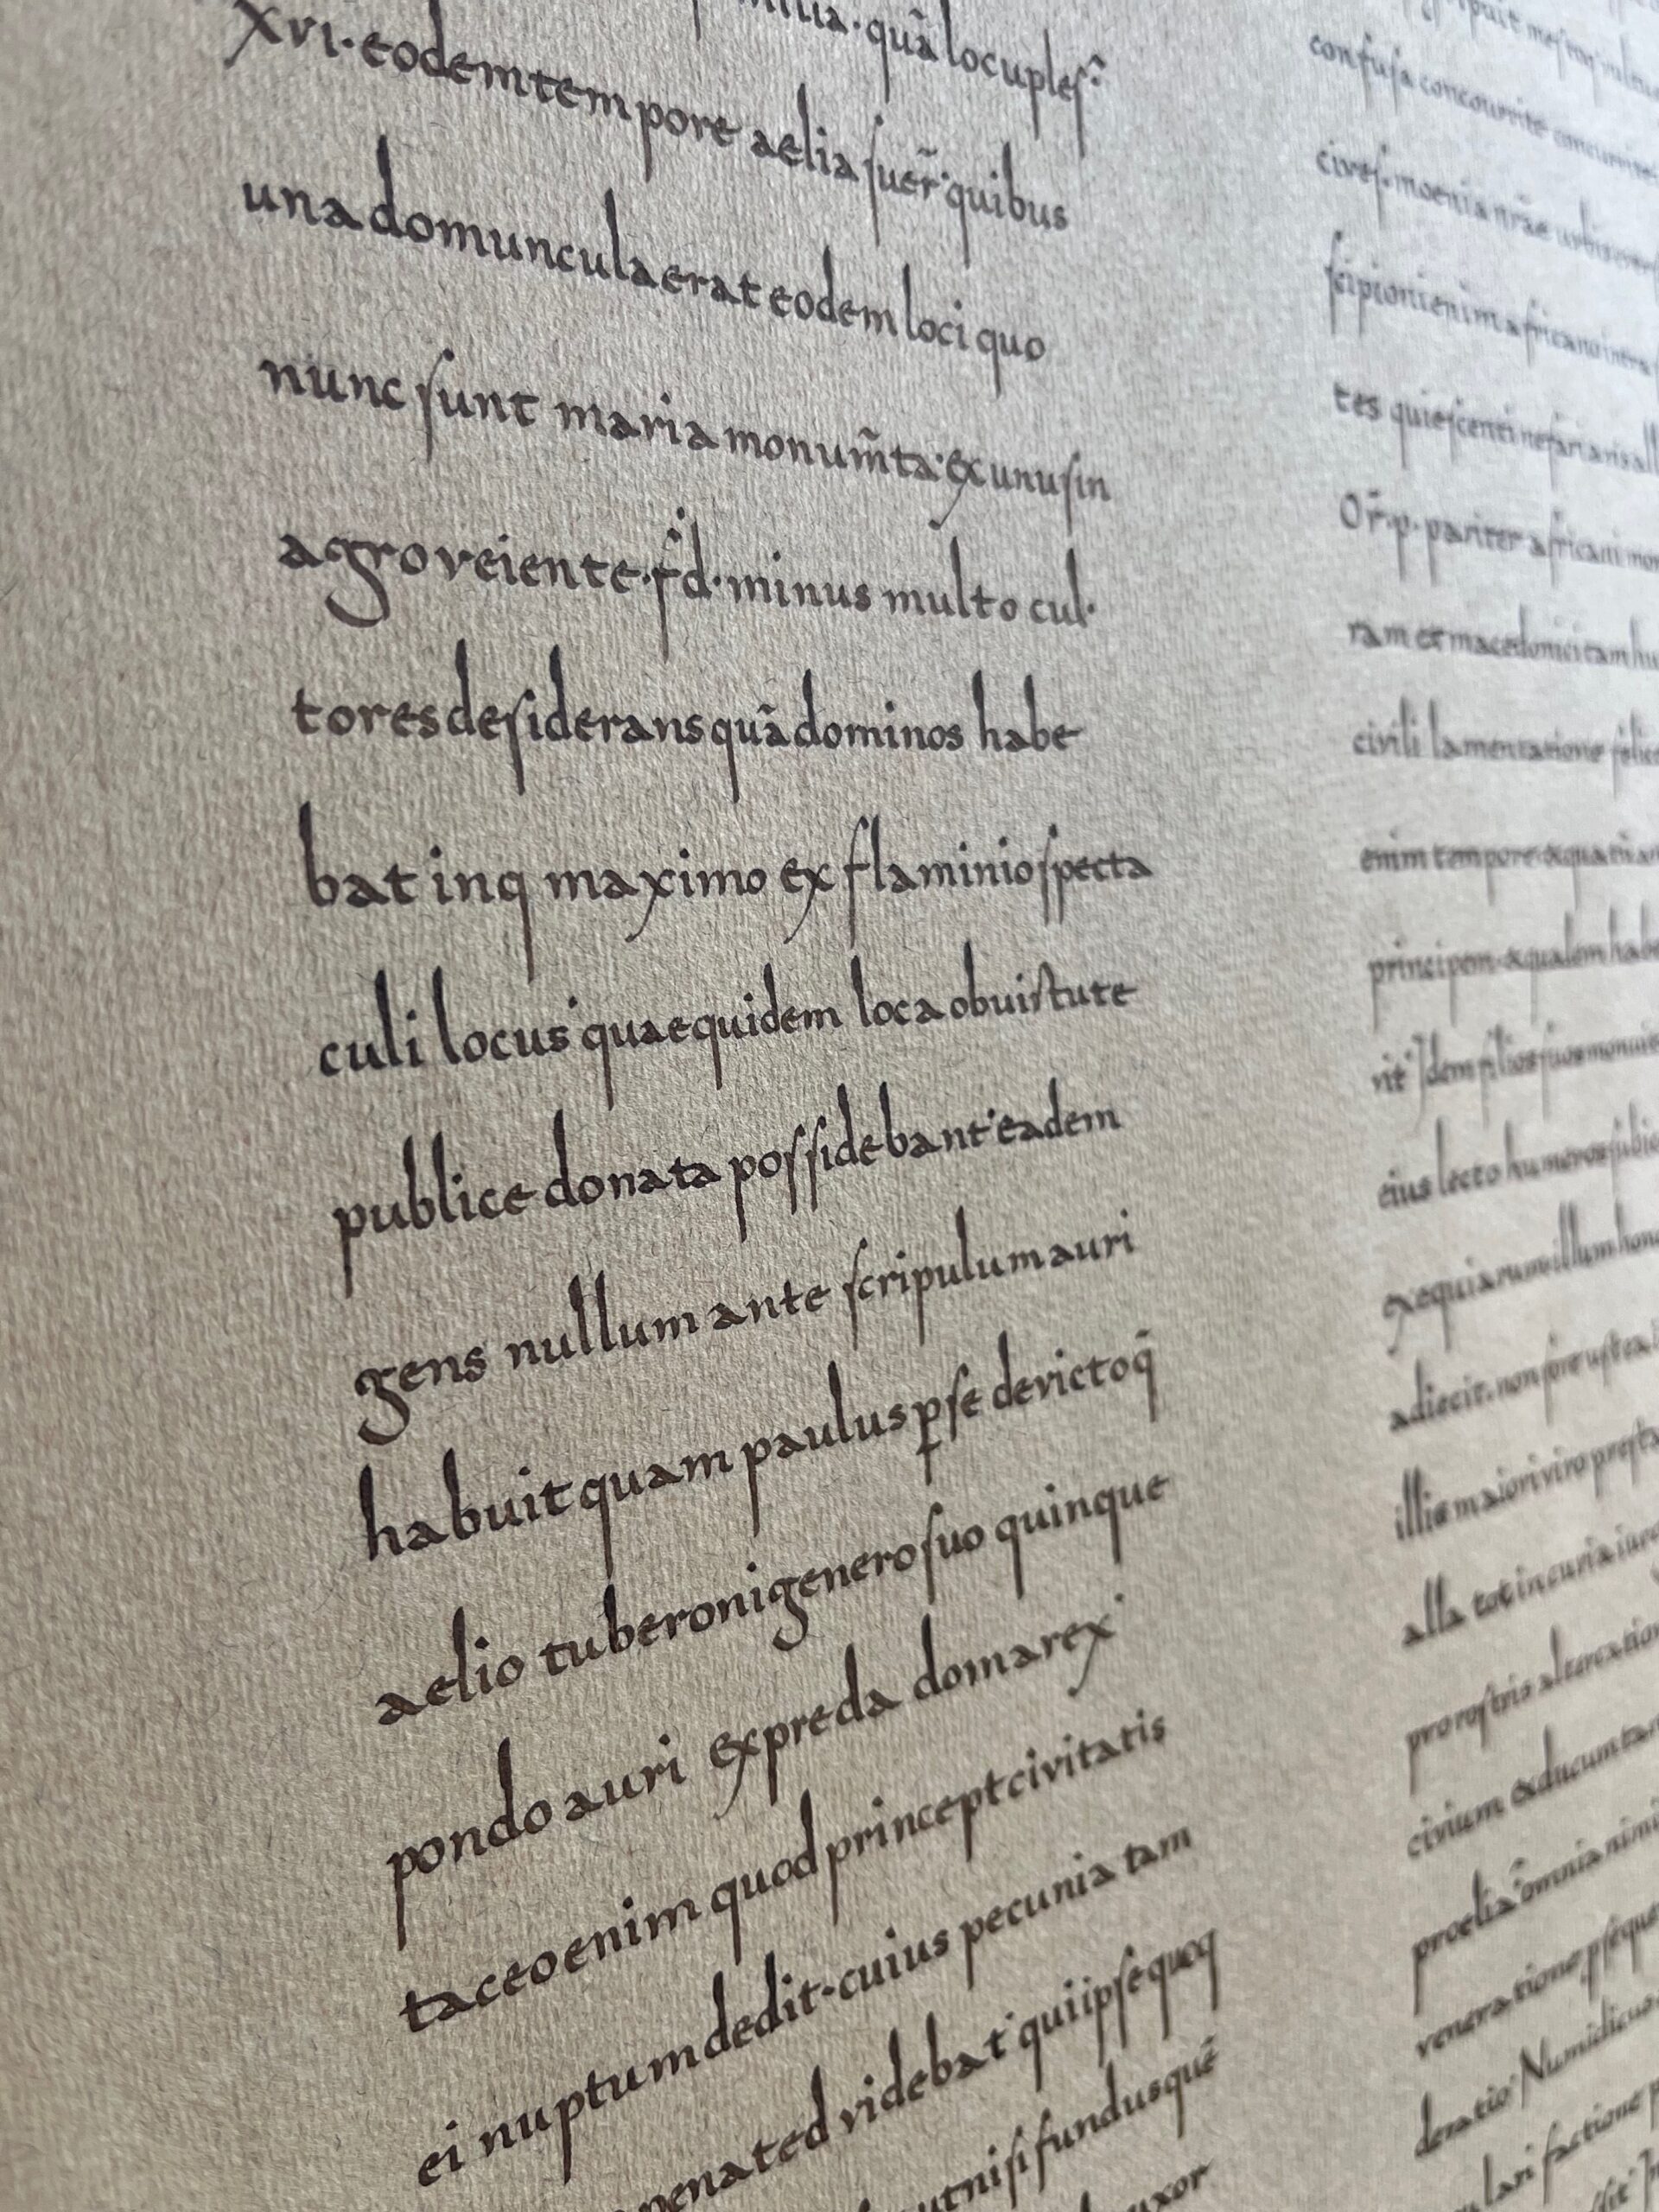 quā locuples:
xvi· eodem tempore aelia fuer̄· quibus
una domuncula erat eodem loci quo
nunc sunt maria monum̄ta· & unus in
agro veiente· f̊d· minus multo cul·
tores desiderans quā dominos habe
bat inq maximo ex flaminio specta
culi locus quae quidem loca ob uirtute
publice donata possidebant· eadem
gens nullum ante scripulum auri
habuit quam paulus ꝑse devicto q̄
aelio tuberoni genero suo quinque
pondo auri ex preda domarex·
taceo enim quod princept civitatis
ei nuptum dedit· cuius pecunia tam
penated videbat· qui ipse quoq
ut nisi fundus quē
uxor
confusa concurrite concurrite
cives· moenia nr̄ae urbis
scipioni enim africano intra
tes quiescenti nefaria vis all
Or̄·p· pariter africani mor
ram et macedonici tam hu
civili lamentatione
enim tempore
principem· & qualem habe
vit· Idem filios suos monuit
eius lecto humeros subic
exequiarum illum hono
adiecit· non fore ustea
illis maiori viro presta
alla tot in curia iurg
pro rostris altercation
civium & ducum tan
proelia omnia nimi
veneratione
deratio· Numidicus
lari factione p